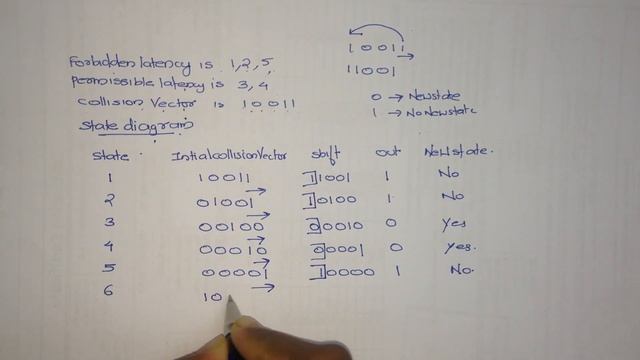 1 0 0 1 1
1 1 0 0 1
Forbidden latency is 1, 2, 5
permissible latency is 3, 4
collision Vector is 1 0 0 1 1
0 → Newstate
1 → No Newstate
State diagram
State Initial collision Vector shift out New state.
1 1 0 0 1 1 1 1 0 0 1 1 No
2 0 1 0 0 1 1 0 1 0 0 1 No
3 0 0 1 0 0 0 0 0 1 0 0 yes
4 0 0 0 1 0 0 0 0 0 1 0 yes.
5 0 0 0 0 1 1 0 0 0 0 1 No.
6 1 0